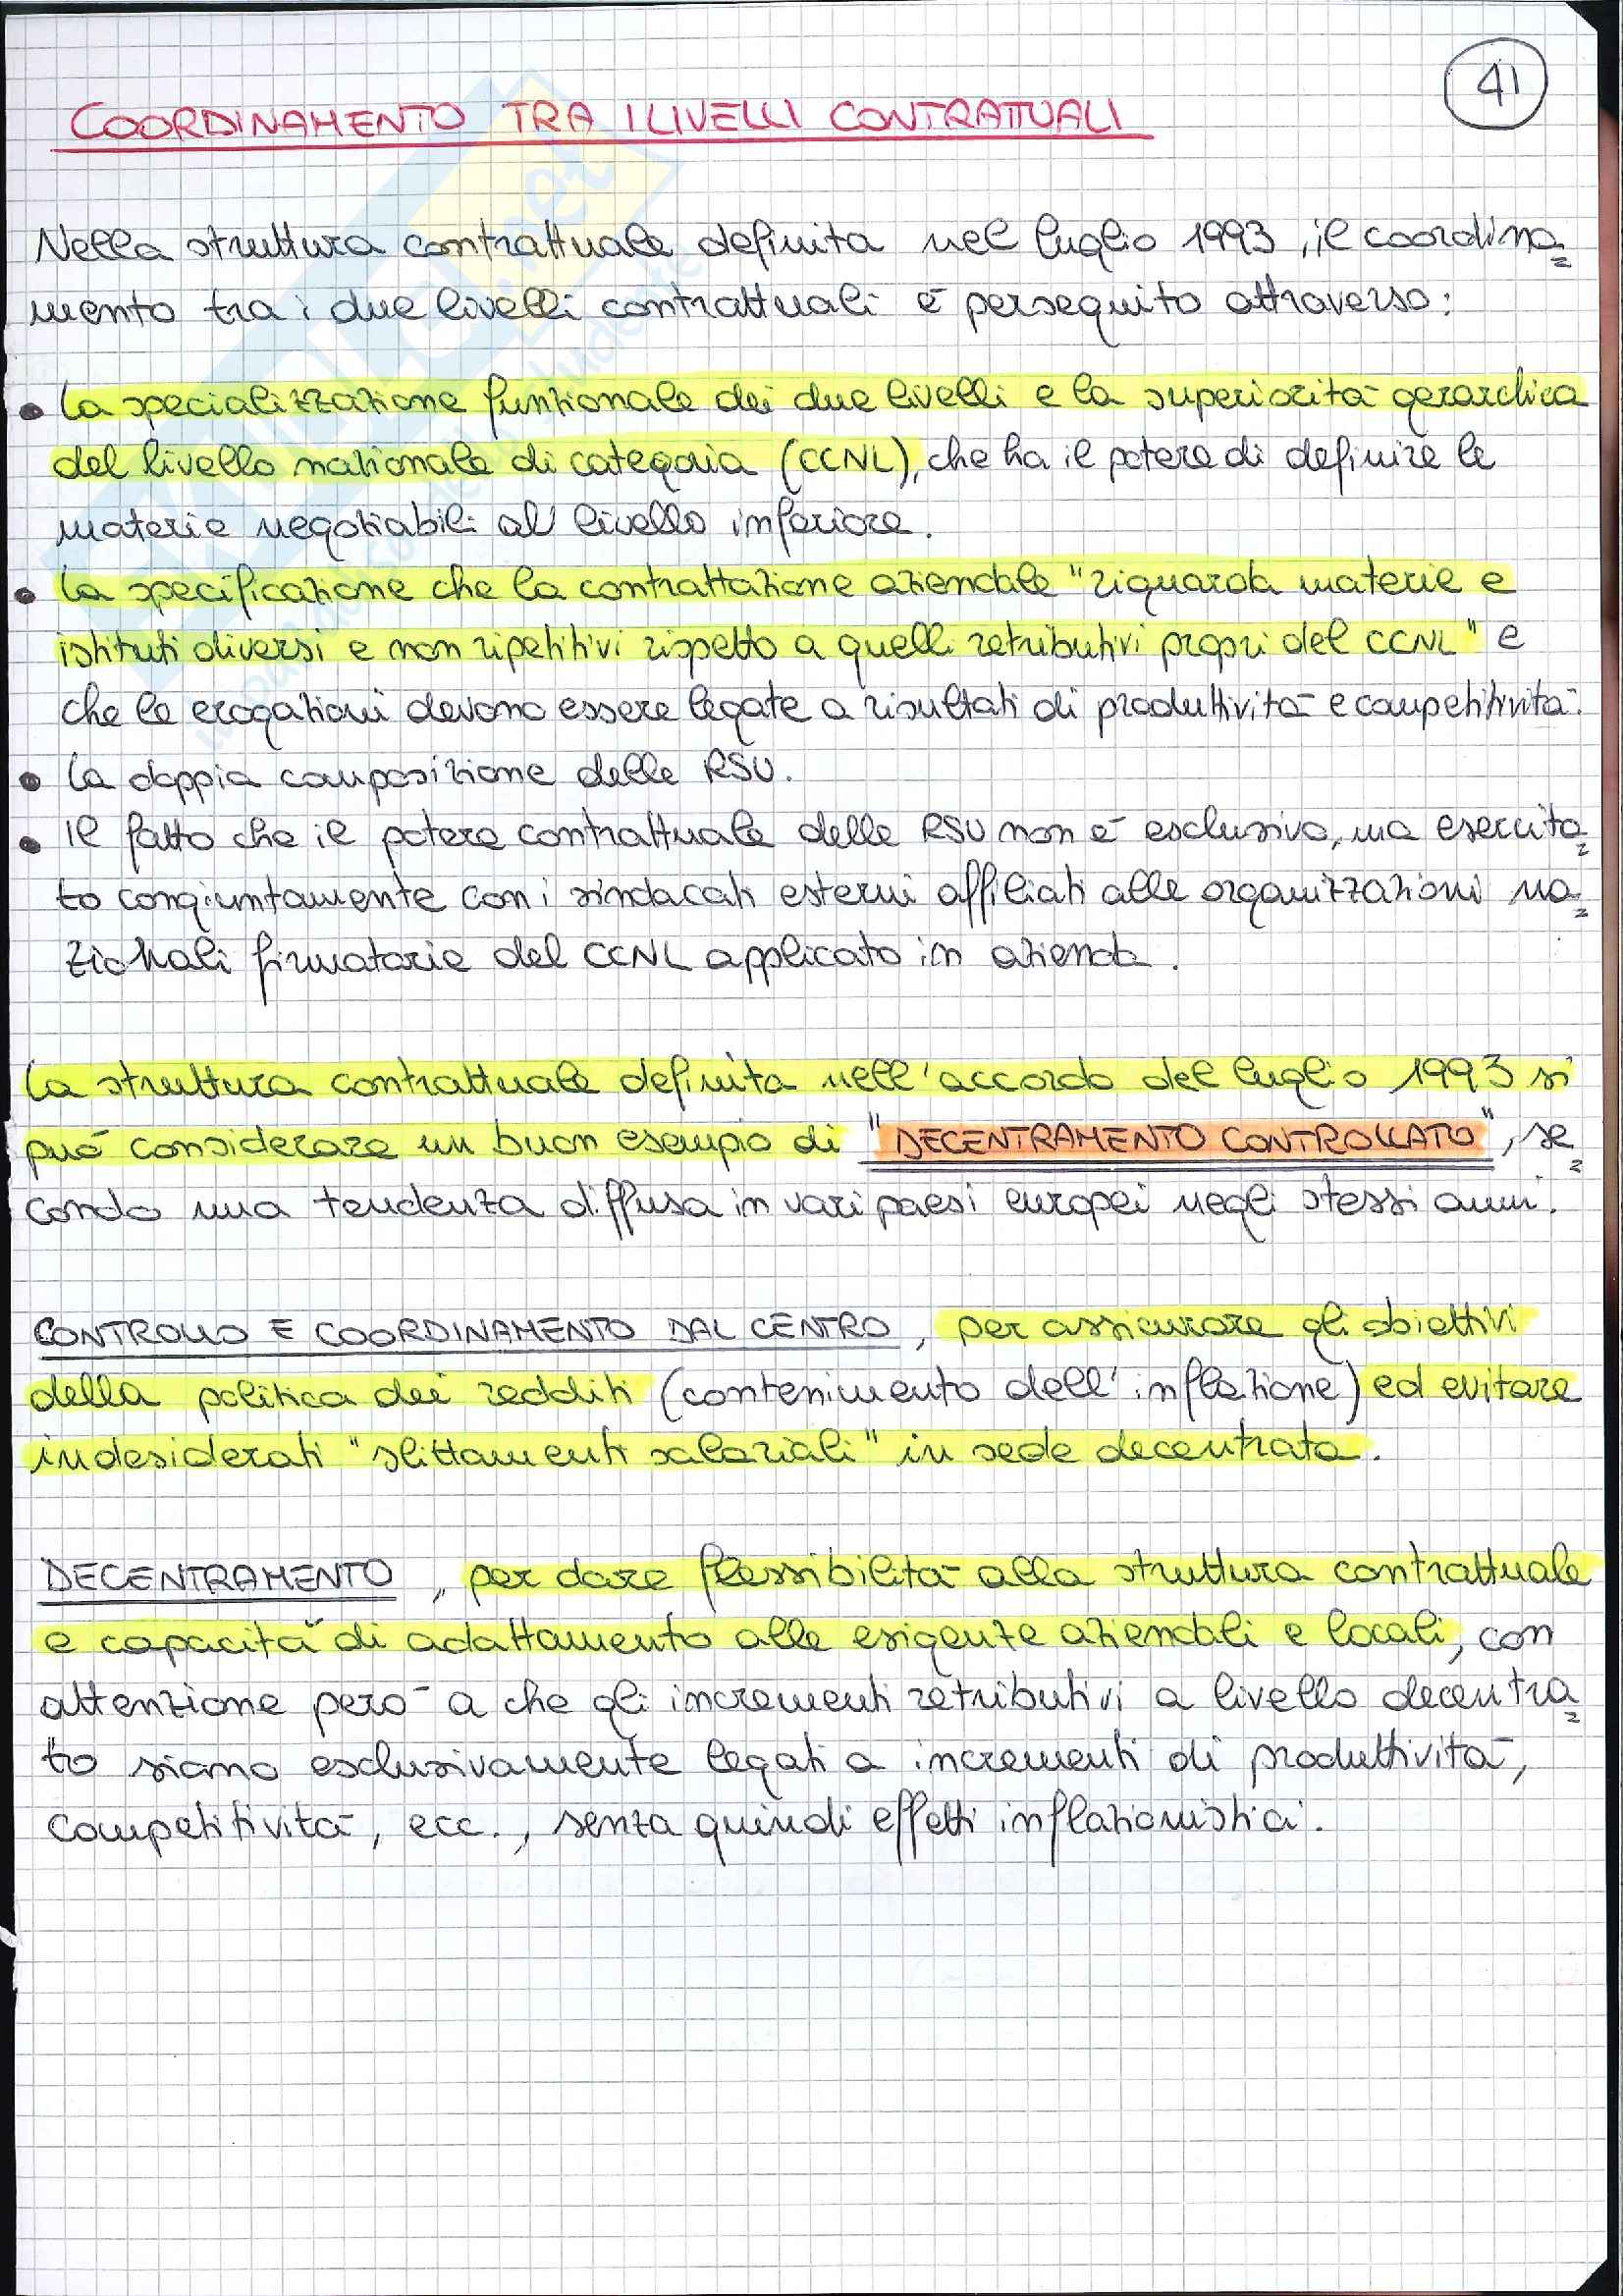 41
COORDINAMENTO TRA I LIVELLI CONTRATTUALI
Nella struttura contrattuale definita nel luglio 1993, il coordina=
mento tra i due livelli contrattuali è perseguito attraverso:
• la specializzazione funzionale dei due livelli e la superiorità gerarchica
del livello nazionale di categoria (CCNL), che ha il potere di definire le
materie negoziabili al livello inferiore.
• la specificazione che la contrattazione aziendale "riguarda materie e
istituti diversi e non ripetitivi rispetto a quelli retributivi propri del CCNL" e
che le erogazioni devono essere legate a risultati di produttività e competitività.
• la doppia composizione delle RSU.
• il fatto che il potere contrattuale delle RSU non è esclusivo, ma esercita=
to congiuntamente con i sindacati esterni affiliati alle organizzazioni na=
zionali firmatarie del CCNL applicato in azienda.
la struttura contrattuale definita nell'accordo del luglio 1993 si
può considerare un buon esempio di "DECENTRAMENTO CONTROLLATO", se=
condo una tendenza diffusa in vari paesi europei negli stessi anni.
CONTROLLO E COORDINAMENTO DAL CENTRO, per assicurare gli obiettivi
della politica dei redditi (contenimento dell'inflazione) ed evitare
indesiderati "slittamenti salariali" in sede decentrata.
DECENTRAMENTO, per dare flessibilità alla struttura contrattuale
e capacità di adattamento alle esigenze aziendali e locali, con
attenzione però a che gli incrementi retributivi a livello decentra=
to siano esclusivamente legati a incrementi di produttività,
competitività, ecc., senza quindi effetti inflazionistici.